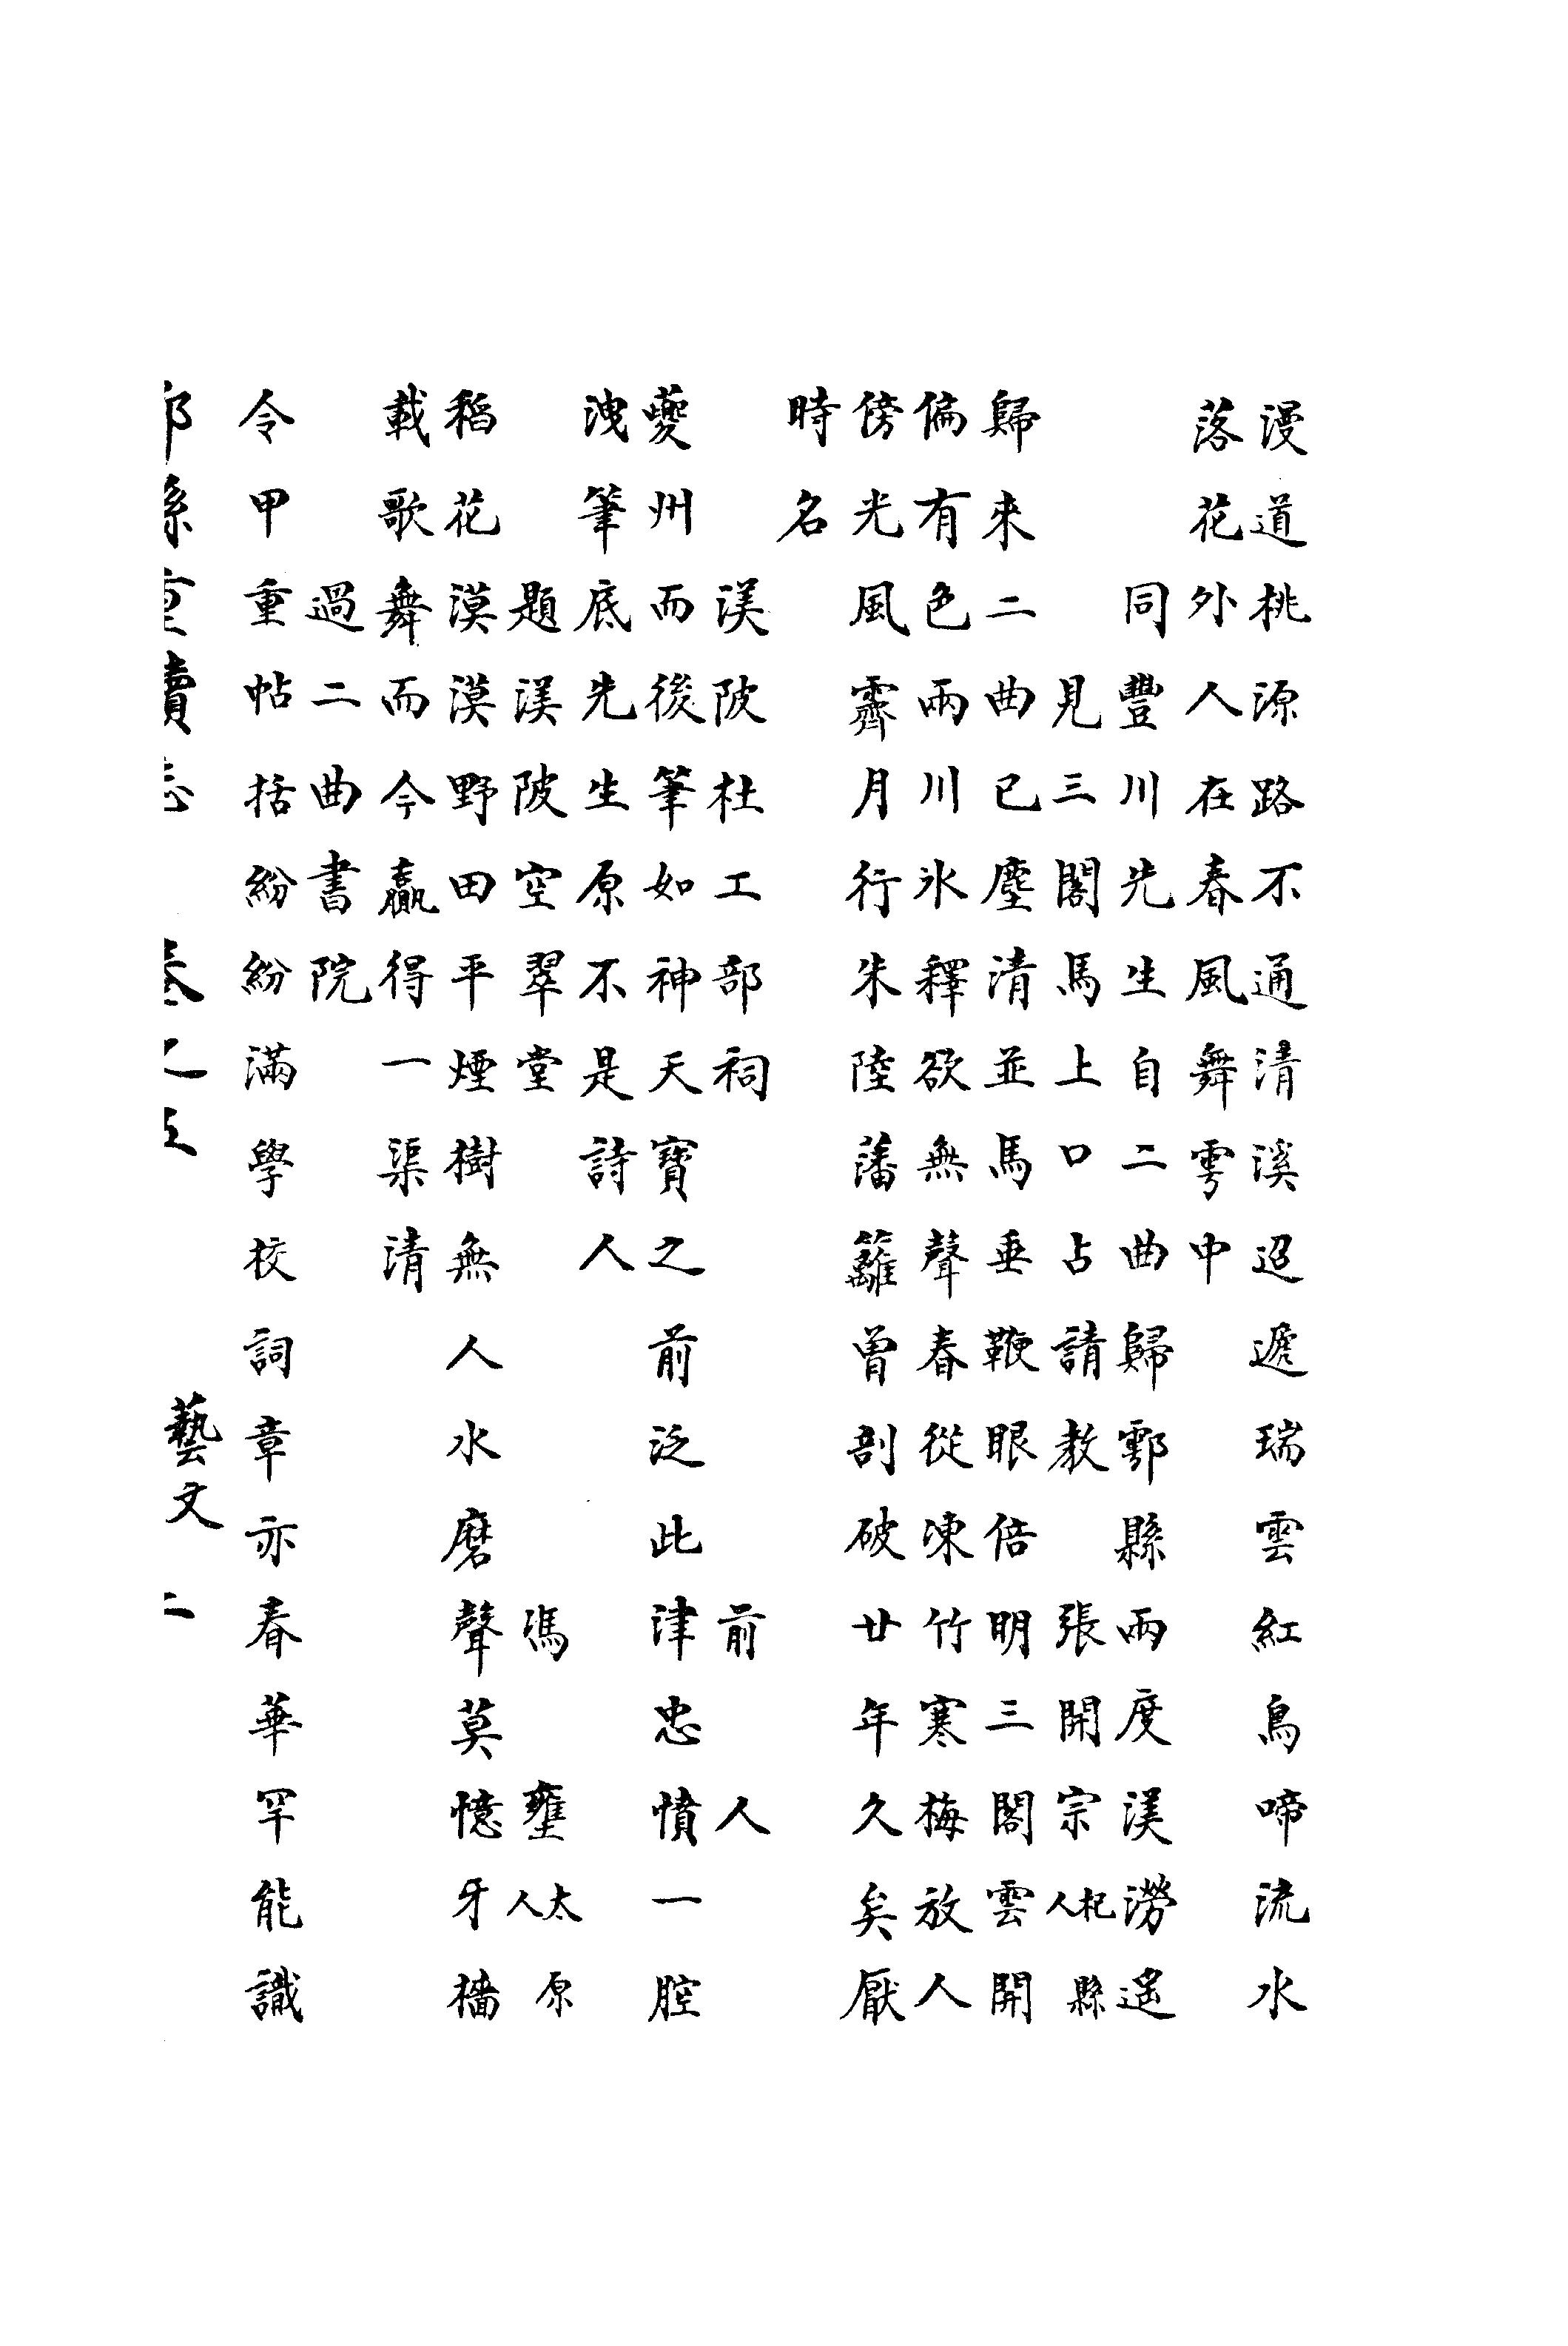 漫道桃源路不通清溪迢遞瑞雲紅鳥啼流水
落花外人在春風舞雩中
同豐川先生自二曲歸鄠縣兩度渼澇遥
見三閣馬上口占請教 張開宗杞縣人
歸來二曲已塵清並馬垂鞭眼倍明三閣雲開
偏有色兩川氷釋欲無聲春從凍竹寒梅放人
傍光風霽月行朱陸藩籬曾剖破廿年久矣厭
時名
渼陂杜工部祠 前人
夔州而後筆如神天寶之前泛此津忠憤一腔
洩筆底先生原不是詩人
題渼陂空翠堂 馮壅太原人
稻花漠漠野田平煙樹無人水磨聲莫憶牙檣
載歌舞而今贏得一渠清
過二曲書院
令甲重帖括紛紛滿學校詞章亦春華罕能識
縣重續志 卷之五 藝文